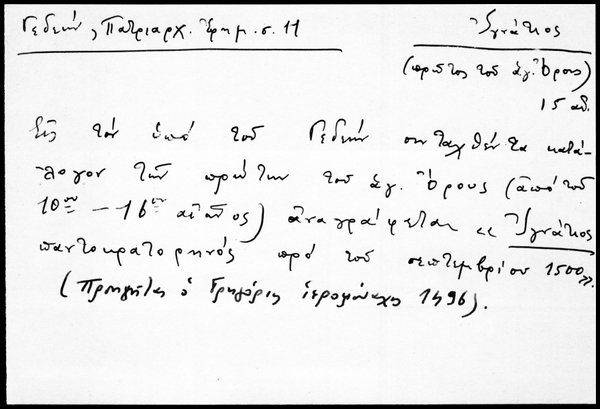 Γεδεών, Πατριαρχ. Ἐφημ. σ. 11
Ἰγνάτιος
(πρῶτος τοῦ ἁγ. Ὄρους)
15 αἰ.
Εἰς τὸν ὑπὸ τοῦ Γεδεών συνταχθέντα κατά-
λογον τῶν πρώτων τοῦ ἁγ. Ὄρους (ἀπὸ τοῦ
10ου – 16ου αἰῶνος) ἀναγράφεται «Ἰγνάτιος
παντοκρατορηνός πρὸ τοῦ σεπτεμβρίου 1500».
(Προηγεῖται ὁ Γρηγόριος ἱερομόναχος 1496).